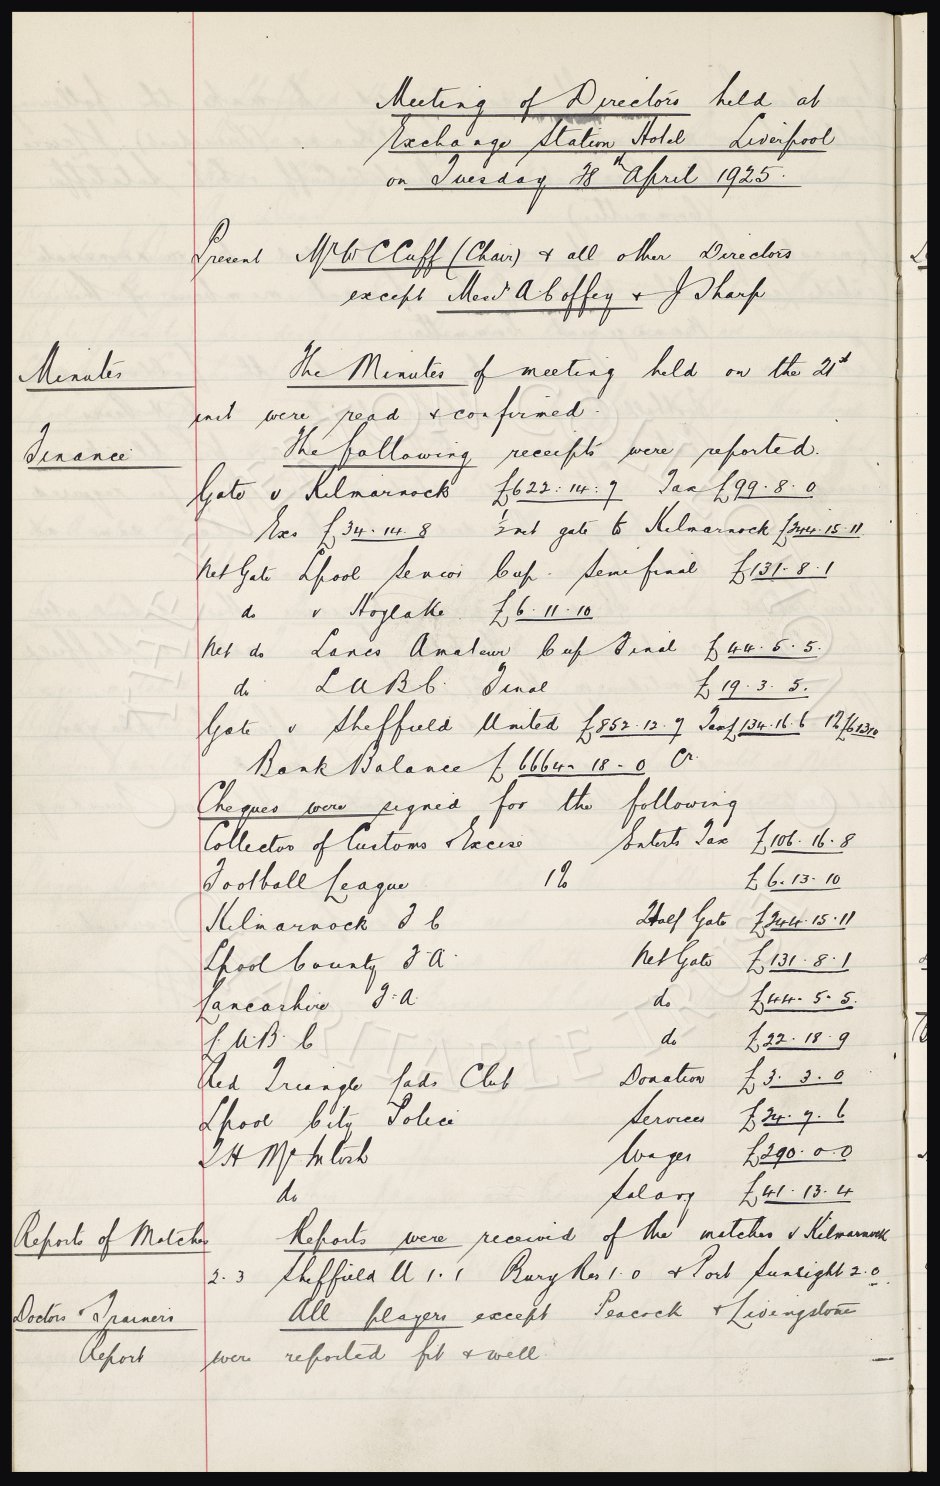 Meeting of Directors held at
Exchange Station Hotel Liverpool
on Tuesday 28th April 1925.
Present Mr W C Cuff (Chair) & all other Directors
except Messrs A Coffey & J Sharp
Minutes The Minutes of meeting held on the 21st
inst were read & confirmed.
Finance The following receipts were reported.
Gate v Kilmarnock £622. 14. 9 Tax £99. 8. 0
Exs £34. 14. 8 ½ net gate to Kilmarnock £244. 15. 11
Net Gate Lpool Senior Cup. Semi final £131. 8. 1
do v Hoylake £6. 11. 10
Net do Lancs Amateur Cup Final £44. 5. 5.
do L U B C. Final £19. 3. 5.
Gate v Sheffield United £852. 12. 9 Tax £134. 16. 6 1% £6 13 10
Bank Balance £6664. 18. 0 Cr.
Cheques were signed for the following
Collector of Customs & Excise Enterts Tax £106. 16. 8
Football League 1% £6. 13. 10
Kilmarnock F C Half Gate £244. 15. 11
Lpool County F.A. Net Gate £131. 8. 1
Lancashire F.A. do £44. 5. 5.
L. U. B. C do £22. 18. 9
Red Triangle Lads Club Donation £3. 3. 0
Lpool City Police Services £24. 9. 6
T H McIntosh Wages £290. 0. 0
do Salary £41. 13. 4
Reports of Matches Reports were received of the matches v Kilmarnock
2. 3 Sheffield U 1. 1 Bury Res 1. 0 & Port Sunlight 2. 0.
Doctors & Trainers All players except Peacock & Livingstone
Report were reported fit & well.